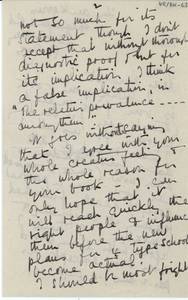 2
not so much for its
statement though I don't
accept that without thorough
diagnostic proof - but for
its implication. I think
a false implication, in
"The relative prevalence ---
among them"
It goes without saying
that I agree with your
whole creative feeling &
the whole reason for
your book - I can
only hope that it
will reach quickly the
right people & influence
them before the new
plans for & type school
become actual.
I should be most